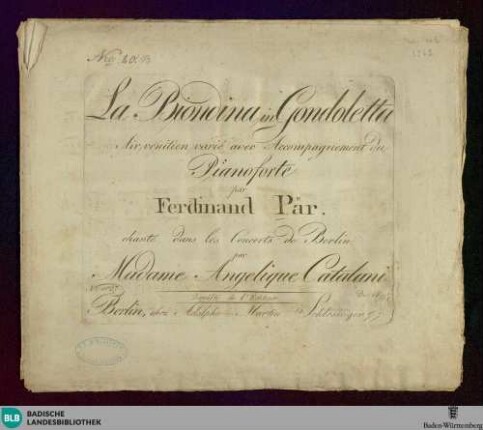 La Biondina in Gondoletta
Air venitien varié avec Accompagnement du
Pianoforte
par
Ferdinand Pär.
chanté dans les Concerts de Berlin
par
Madame Angelique Catalani
Propriété de l'Editeur
Berlin, chez Adolphe Martin Schlesinger
BLB BADISCHE
LANDESBIBLIOTHEK
Baden-Württemberg